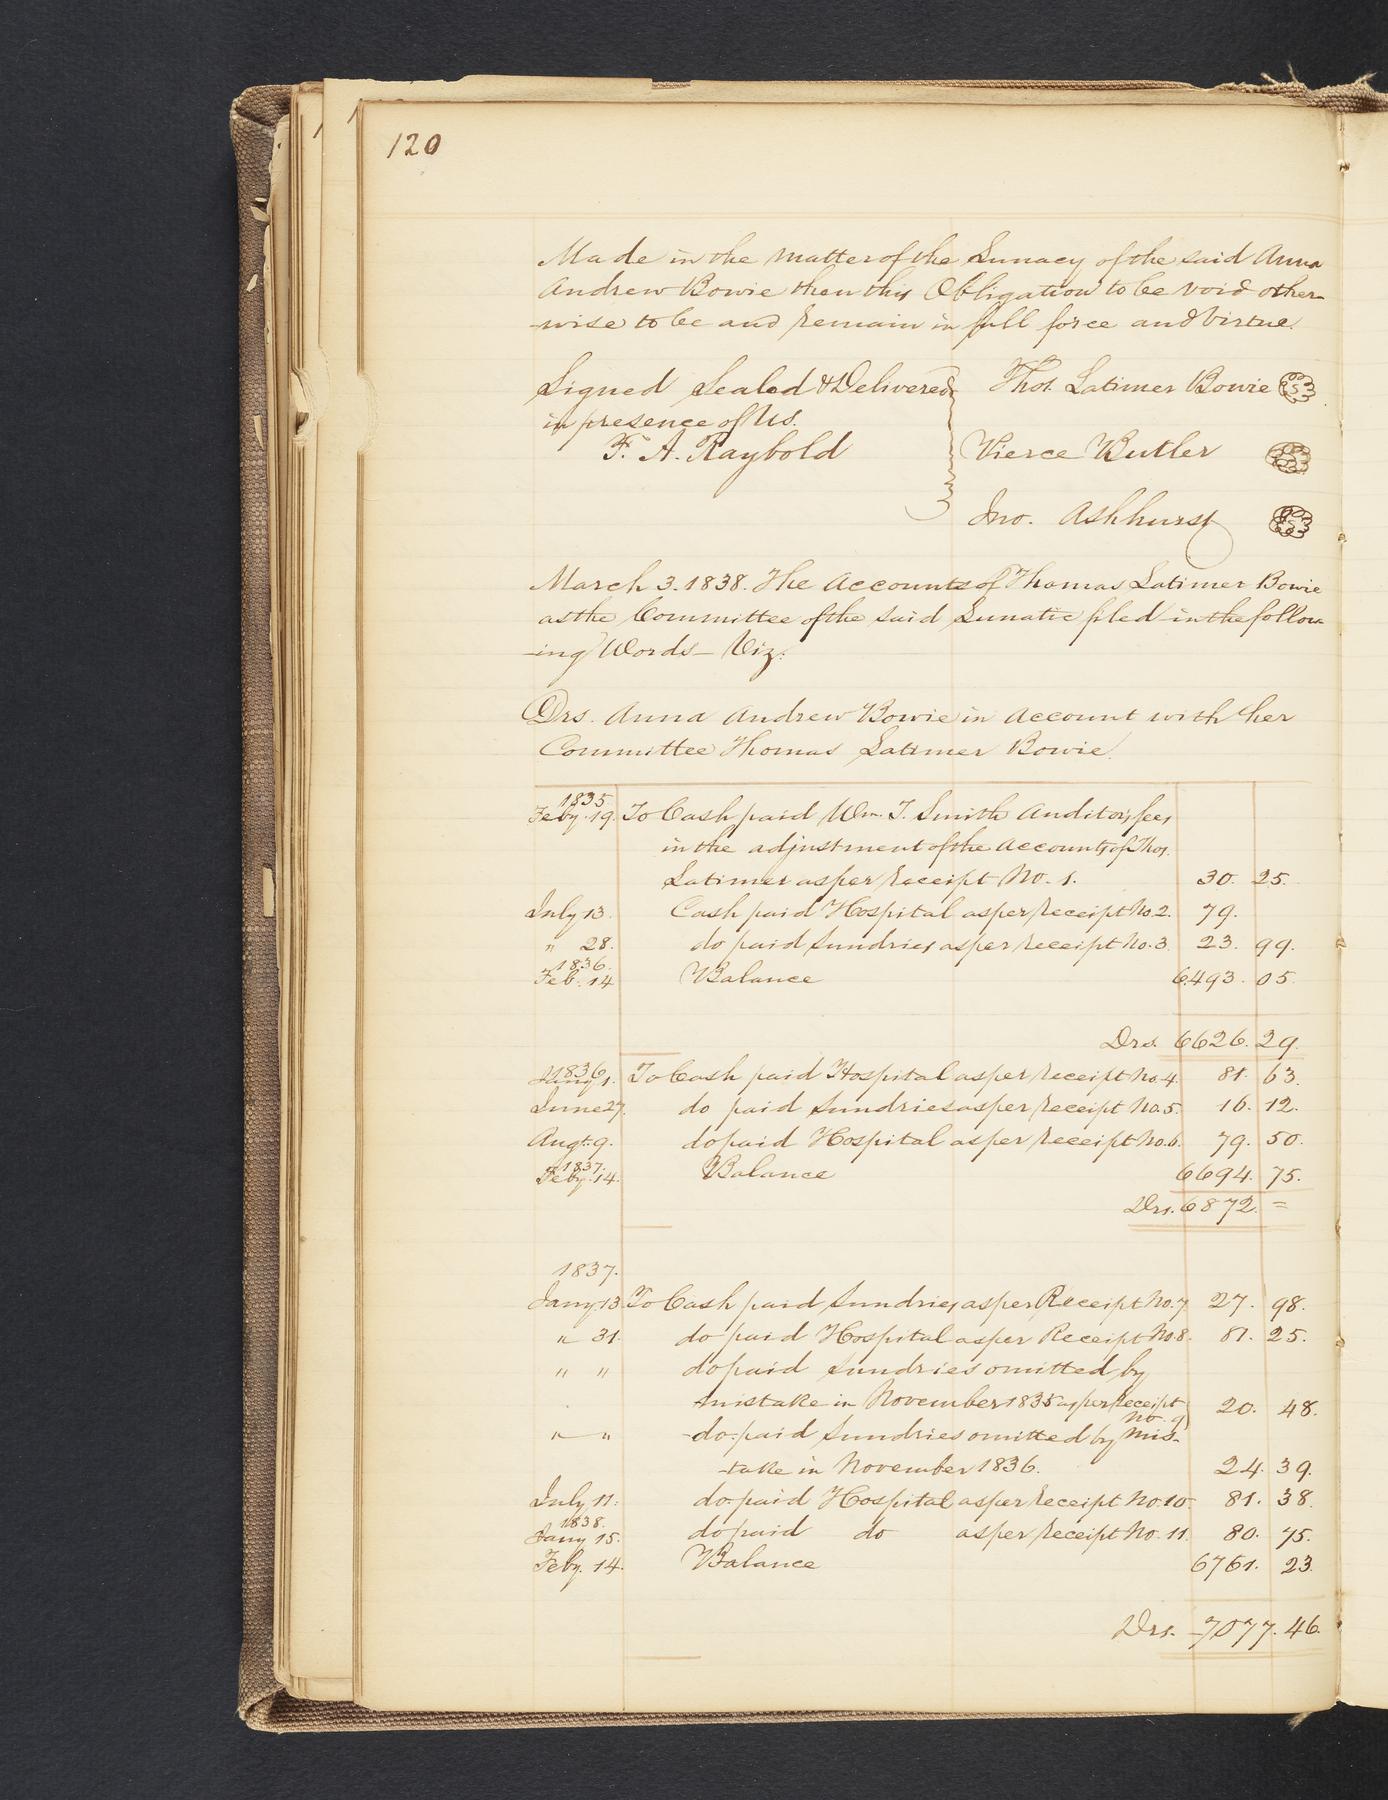 120
Made in the matter of the Lunacy of the said Anna
Andrew Bowie then this Obligation to be void other-
-wise to be and remain in full force and virtue.
Signed Sealed & Delivered Thos. Latimer Bowie
in presence of Us.
F. A. Raybold Pierce Butler
Jno. Ashhurst
March 3. 1838. The Accounts of Thomas Latimer Bowie
as the Committee of the said Lunatic filed in the follow-
-ing Words - Viz:
Drs. Anna Andrew Bowie in Account with her
Committee Thomas Latimer Bowie.
1835
Feby. 19. To Cash paid Wm. T. Smith Auditors fees
in the adjustment of the Accounts of Thos.
Latimer as per receipt No. 1. 30. 25.
July 13. Cash paid Hospital as per receipt No. 2. 79.
" 28. do paid Sundries as per receipt No. 3. 23. 99.
1836.
Feb. 14 Balance 6493. 05.
Drs. 6626. 29.
1836
Jany 1. To Cash paid Hospital as per receipt No. 4. 81. 63.
June 27. do paid Sundries as per receipt No. 5. 16. 12.
Augt. 9. do paid Hospital as per receipt No. 6. 79. 50.
1837.
Feby. 14. Balance 6694. 75.
Drs. 6872. =
1837.
Jany 13 To Cash paid Sundries as per Receipt No. 7 27. 98.
" 31. do paid Hospital as per Receipt No. 8. 81. 25.
" " do paid Sundries omitted by
mistake in November 1835 as per receipt
No. 9 20. 48.
" " do paid Sundries omitted by mis-
-take in November 1836. 24. 39.
July 11. do paid Hospital as per receipt No. 10 81. 38.
1838.
Jany 15. do paid do as per receipt No. 11. 80. 75.
Feby. 14. Balance 6761. 23.
Drs. 7077. 46.